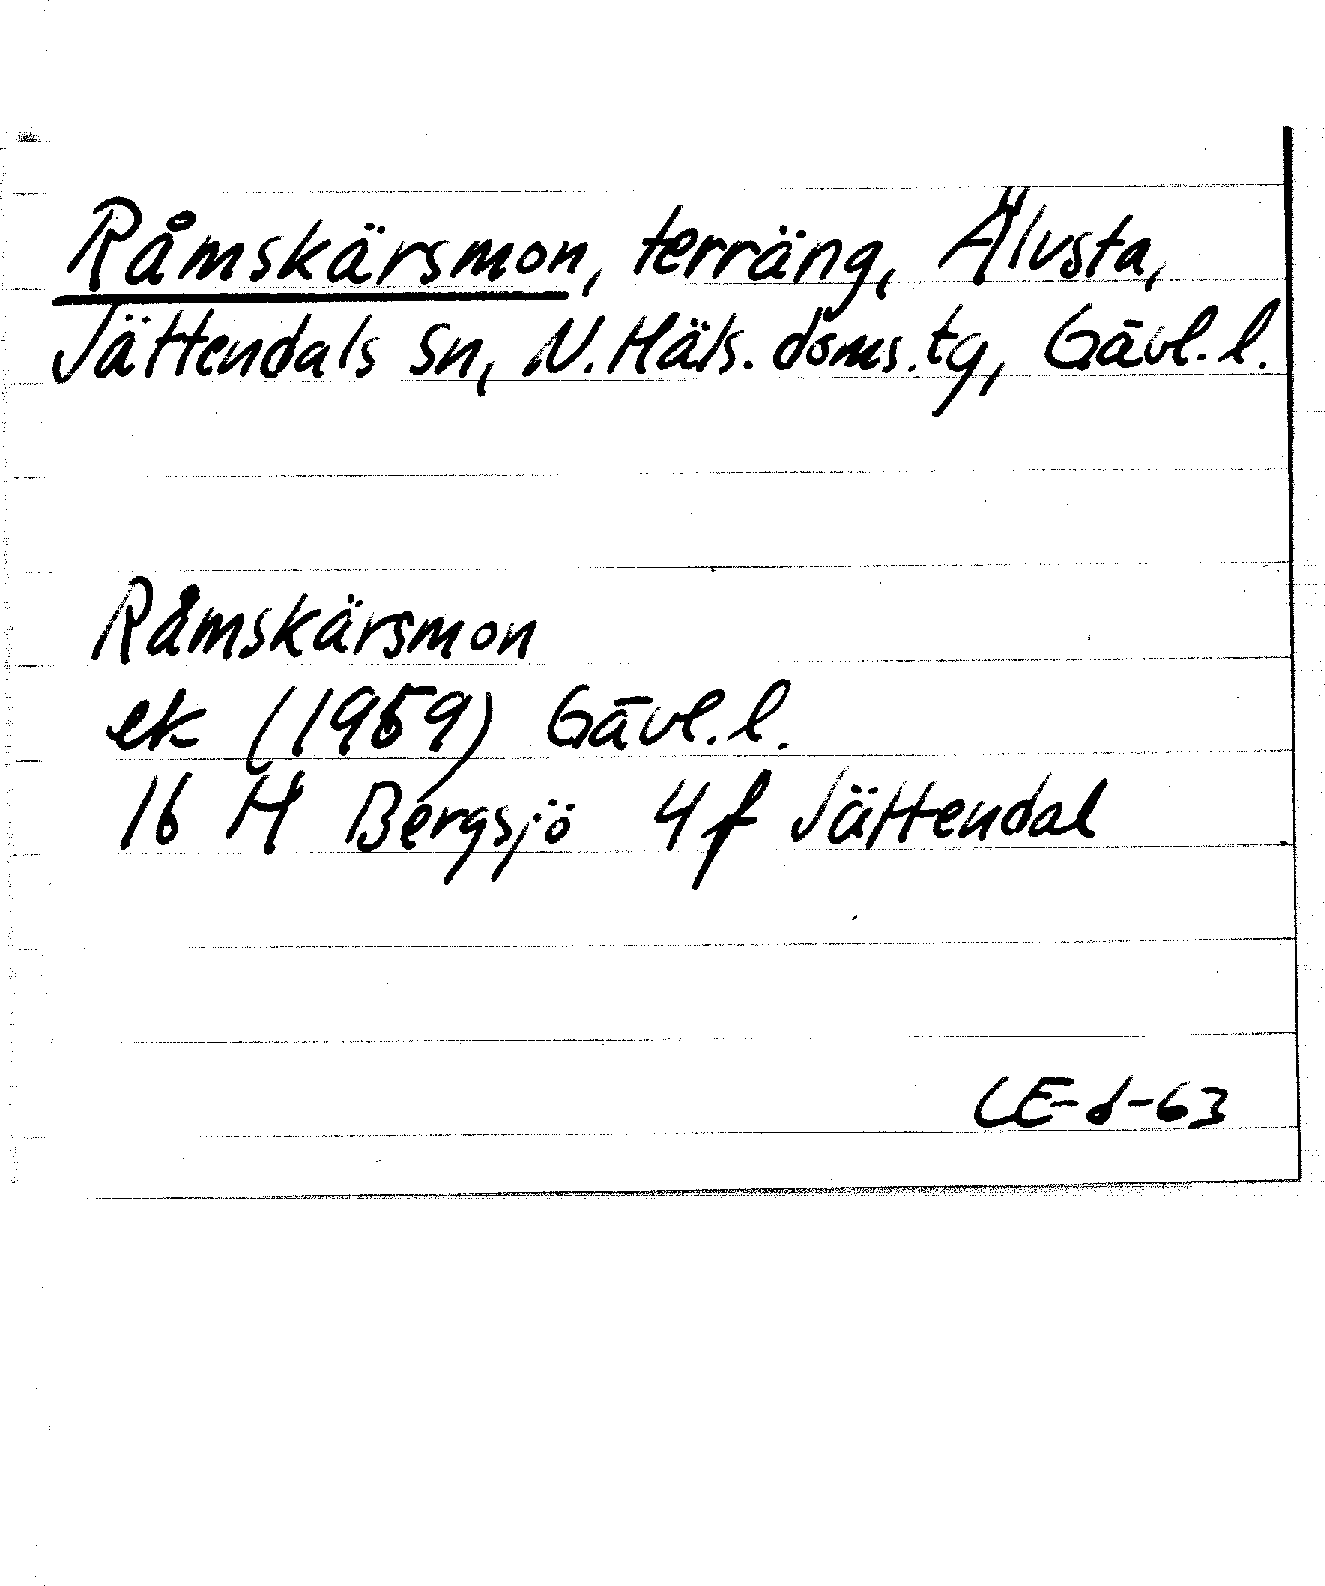 Råmskärsmon, terräng, Älvsta,
Jättendals sn, N. Häls. doms. tg, Gävl. l.
Råmskärsmon
ek (1959) Gävl. l.
16 H Bergsjö 4 f Jättendal
CE-d-63